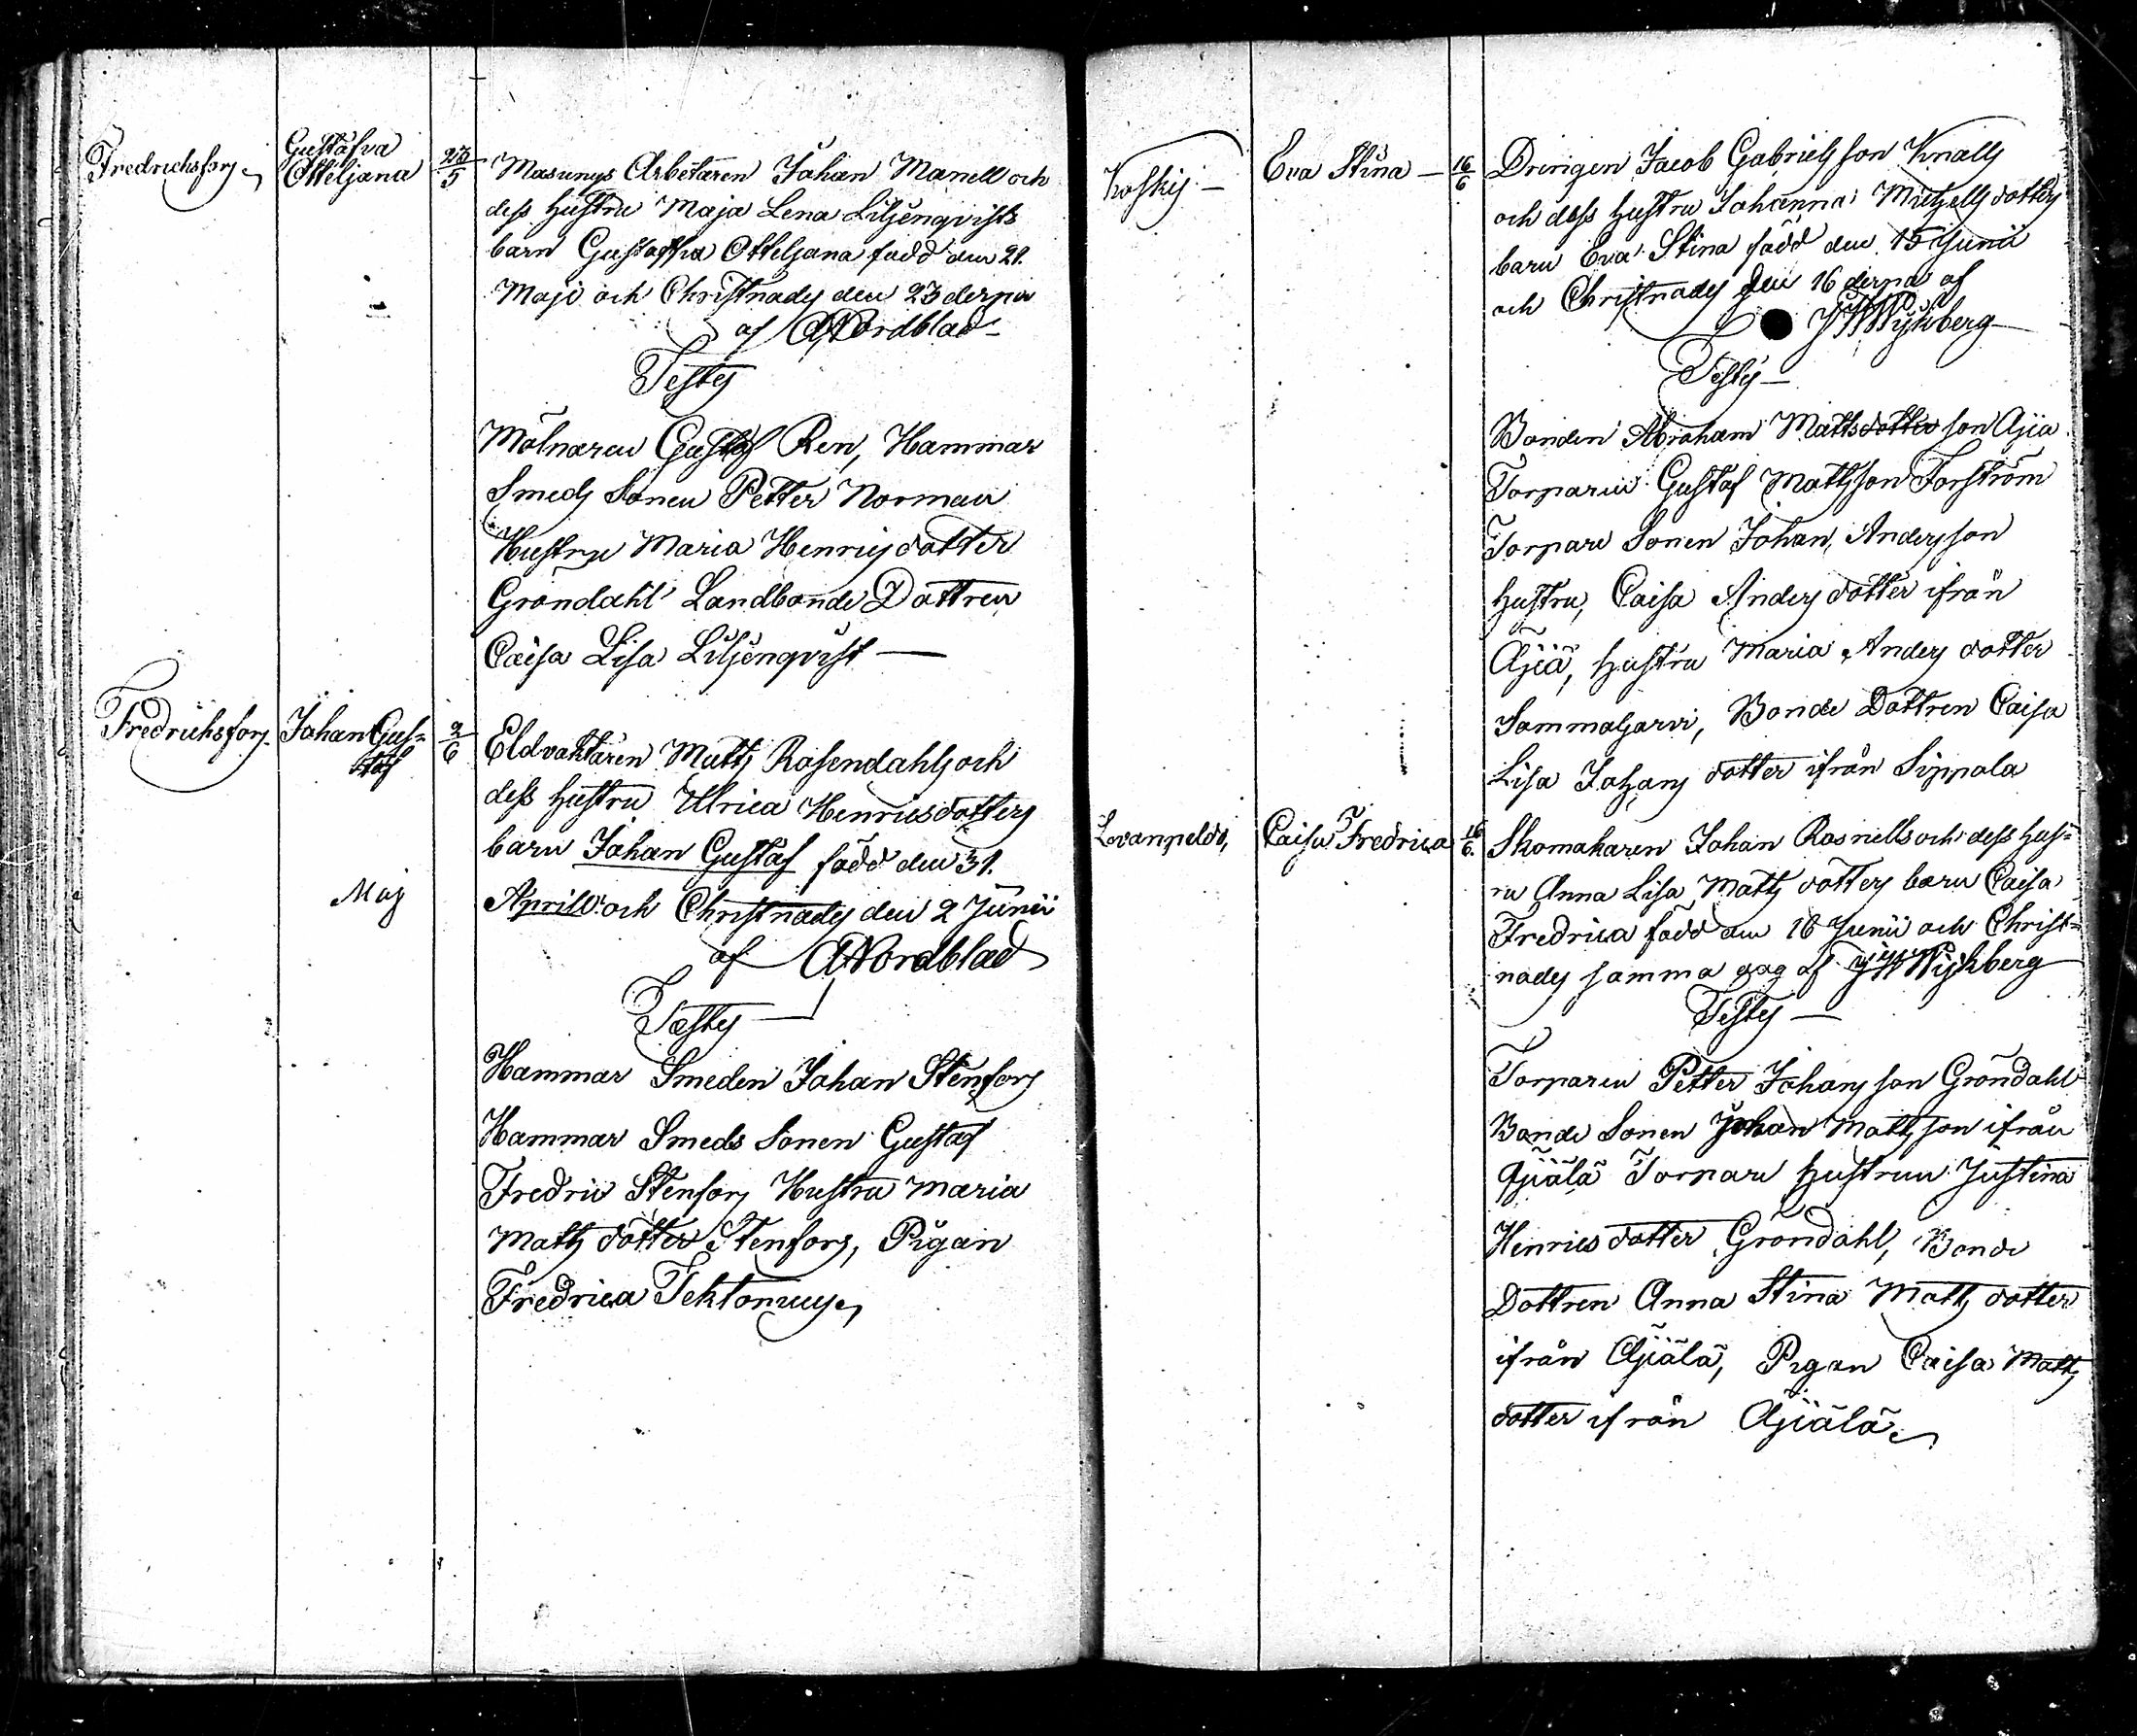 Fredrichsfors
Gustafva
Otteljana
23/5
Masungs Arbetaren Johan Manell och
dess Hustru Maja Lena Liljenqvists
barn Gustafva Otteljana född den 21.
Maji och Christnades den 23 derpå
af A Nordblad
Testes
Mölnaren Gustaf Ren, Hammar
Smeds Sonen Petter Norman
Hustru Maria Henricsdotter
Gröndahl Landbonde Dottren
Caisa Lisa Liljenqvist —
Fredrichsfors
Johan Gus=
taf
2/6
Eldvaktaren Matts Rosendahls och
dess Hustru Ulrica Henricsdotters
barn Johan Gustaf född den 31.
Maj
Aprill och Christnades den 2 Junii
af A Nordblad
Testes —
Hammar Smeden Johan Stenfors
Hammar Smeds Sonen Gustaf
Fredric Stenfors Hustru Maria
Matts dotter Stenfors, Pigan
Fredrica
Koskis —
Eva Stina —
16/6
Drengen Jacob Gabriels son Knalls
och dess Hustru Johanna Michells dotters
barn Eva Stina född den 15 Junii
och Christnades den 16 derpå af
Wijkberg
Testes —
Bonden Abraham Matts dotter son Äjiä
Torparen Gustaf Mattsson Forström
Torpare Sonen Johan Andersson
Hustru, Caisa Anders dotter ifrån
Äjiä, Hustru Maria Anders dotter
Sammaljärvi, Bonde Dottren Caisa
Lisa Johans dotter ifrån Sippola
Lovanpeldo,
Caisa Fredrica
16/6.
Skomakaren Johan Rosnells och dess Hus=
ru Anna Lisa Matts dotters barn Caisa
Fredrica född den 16 Junii och Christ=
nades samma dag af Wijkberg
Testes —
Torparen Petter Johans son Gröndahl
Bonde Sonen Johan Matts son ifrån
Äjiälä Torpare Hustrun Justina
Henrics dotter Gröndahl, Bonde
Dottren Anna Stina Matts dotter
ifrån Äjiälä, Pigan Caisa Matts
dotter ifrån Äjiälä